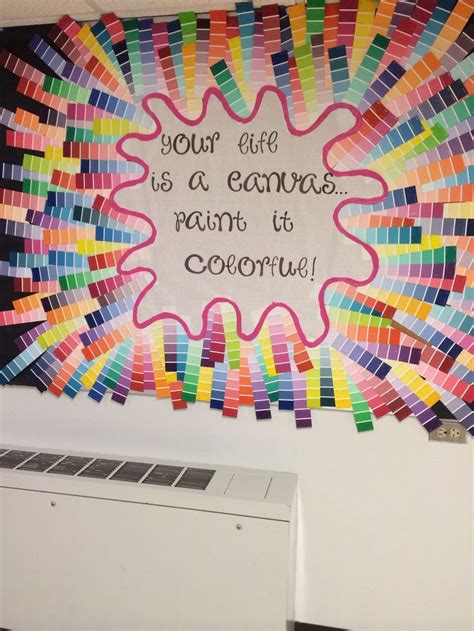 your life
is a canvas...
paint it
colorful!